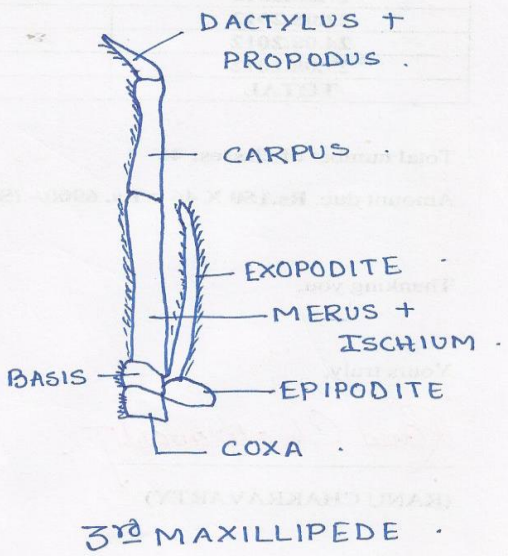 DACTYLUS +
PROPODUS .
CARPUS .
EXOPODITE .
MERUS +
ISCHIUM .
BASIS
EPIPODITE
COXA .
3rd MAXILLIPEDE .